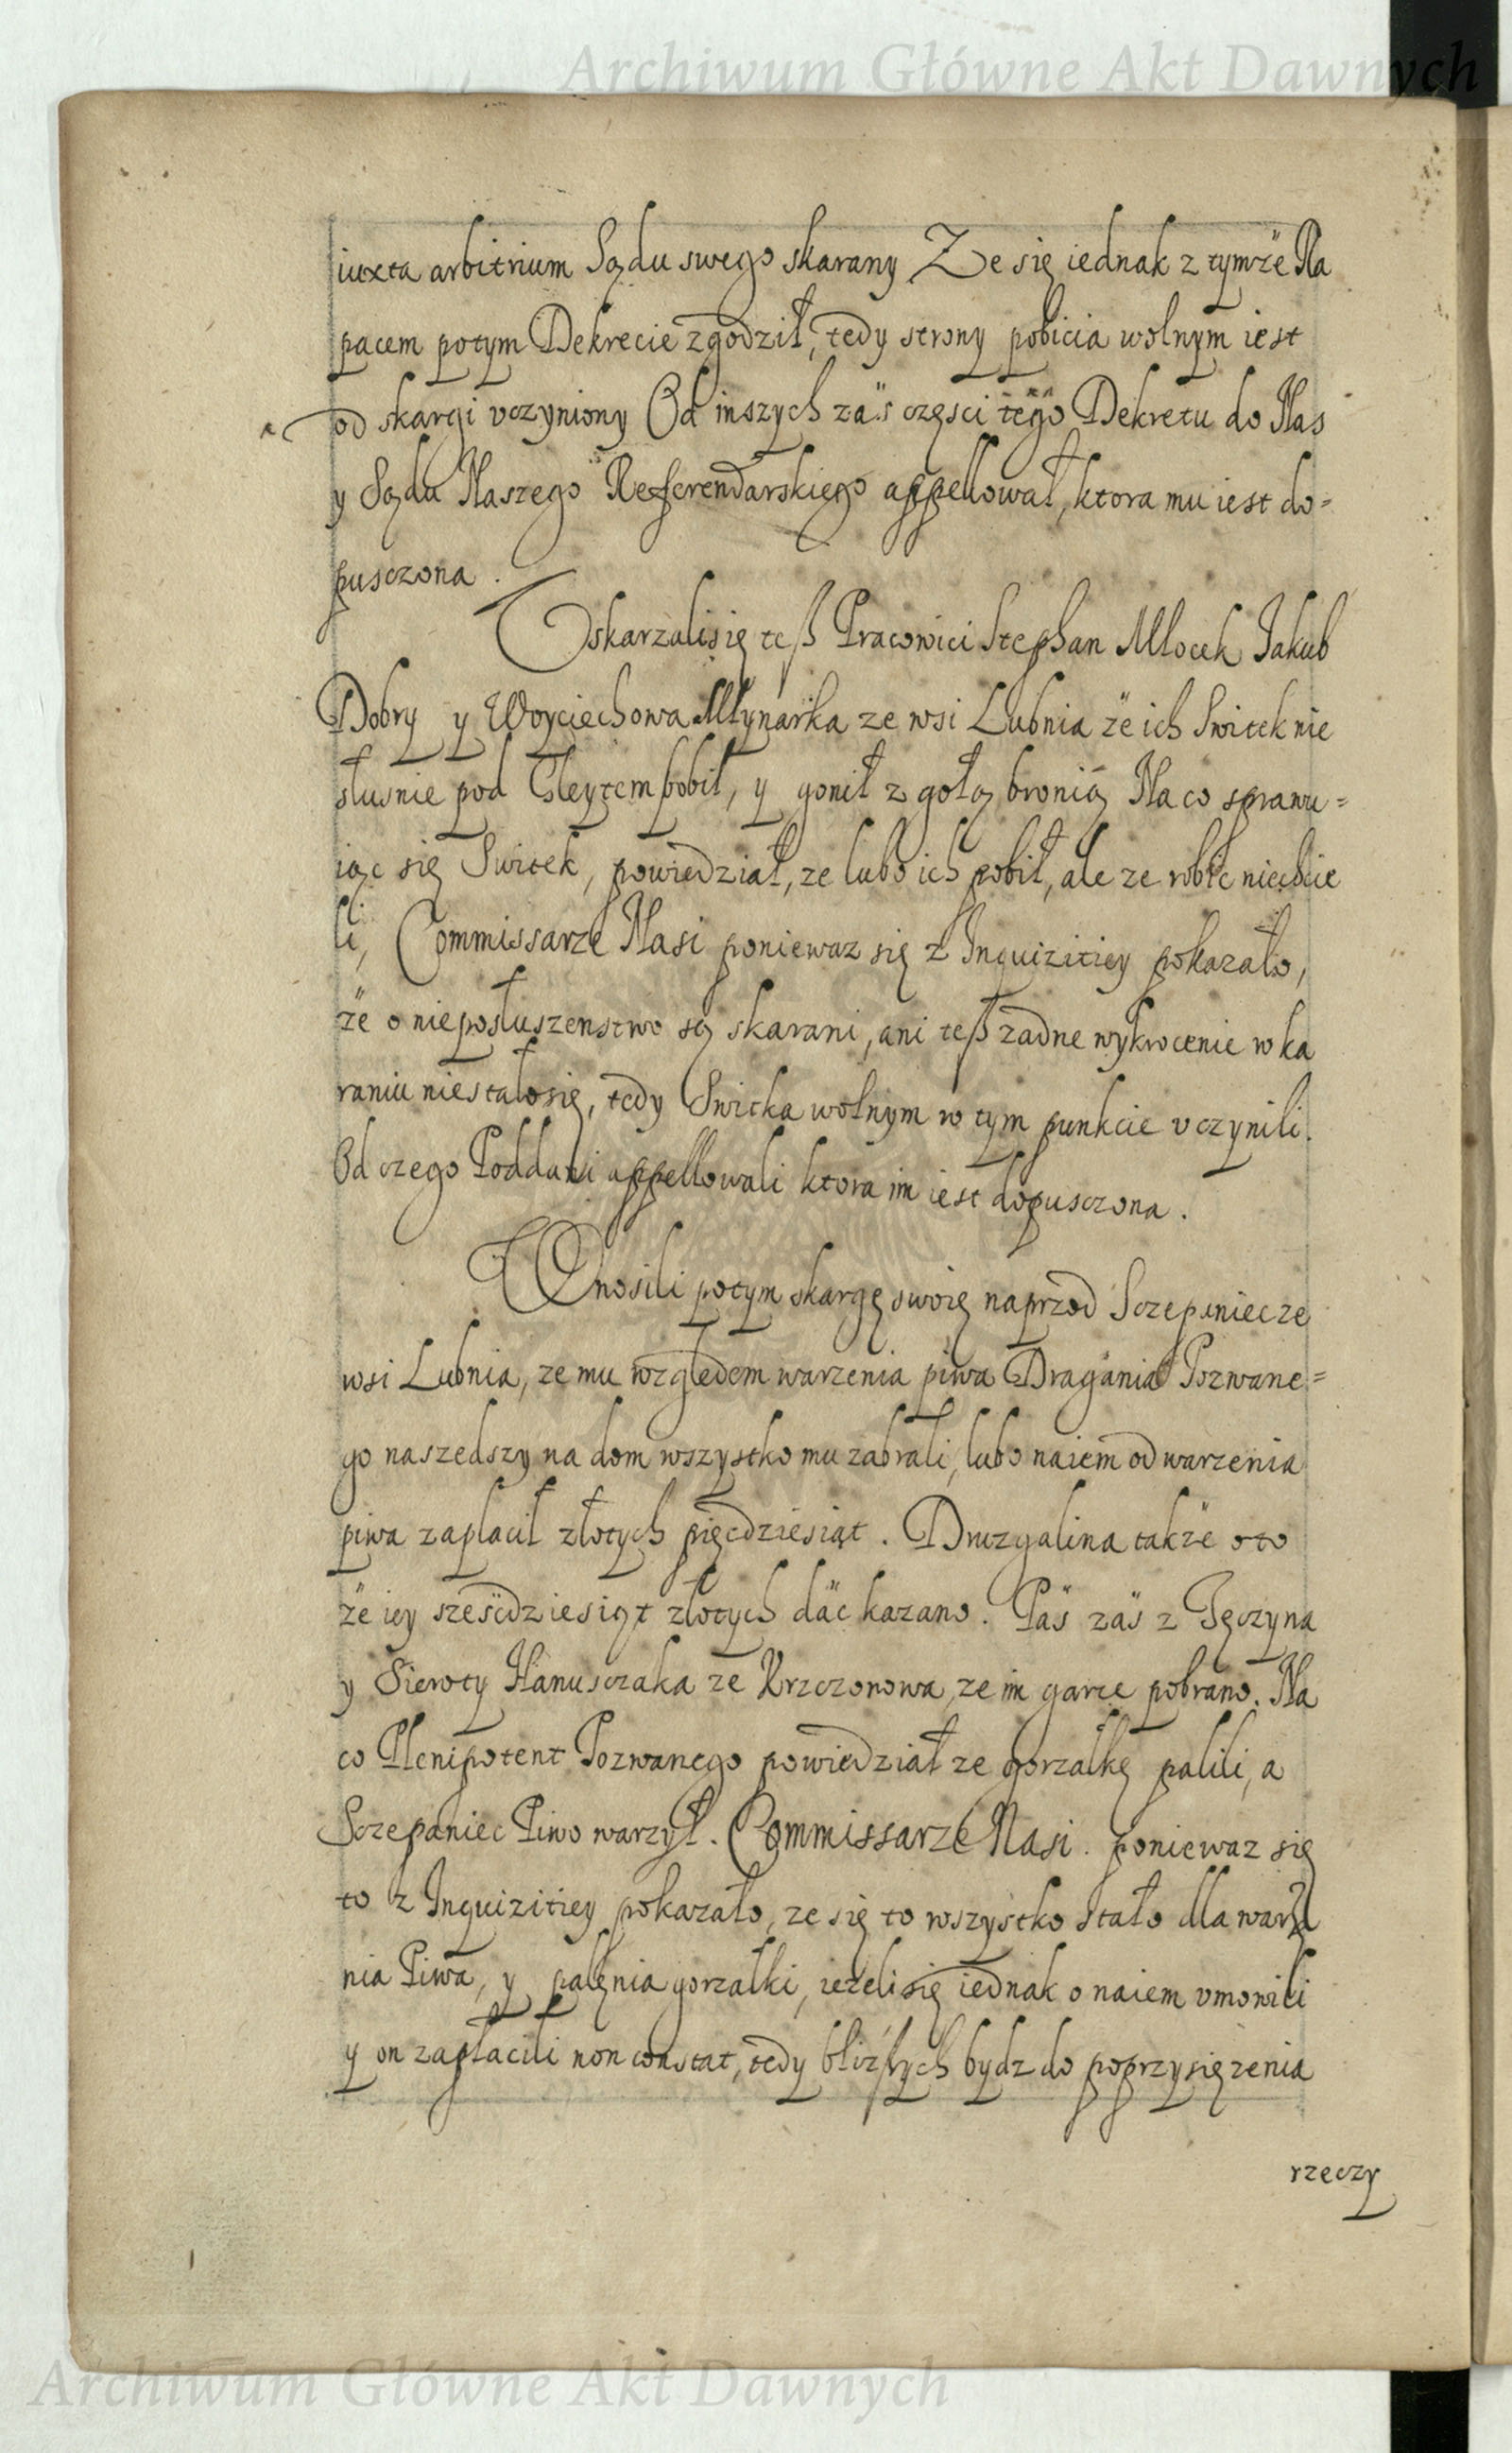 Archiwum Główne Akt Dawnych
iuxta arbitrium Sądu swego skarany Ze się iednak z tymże Na
pacem potym Dekrecie zgodził, tedy strony pobicia wolnym iest
od skargi vczyniony Od inszych zaś częsci tego Dekretu do Nas
y Sądu Naszego Refferendarskiego appellował, ktora mu iest do=
pusczona.
Oskarzali się teß Pracowici Stephan Młocek Jakub
Dobry y Woyciechowa Młynarka ze wsi Lubnia że ich Switek nie
słusnie pod Gleytem pobił, y gonił z gołą bronią Na co sprawu=
iąc się Switek, powiedział, ze lubo ich pobił, ale ze robić niechcie
li, Commissarze Nasi poniewaz się z Inquizitiey pokazało,
że o nieposłuszenstwo są skarani, ani teß zadne wykrocenie w ka
raniu niestało się, tedy Switka wolnym w tym punkcie vczynili.
Od czego Poddani appellowali ktora im iest dopusczona.
Wnosili potym skargę swoię naprzod Sczepaniec ze
wsi Lubnia, ze mu względem warzenia piwa Dragania Pozwane=
go naszedszy na dom wszystko mu zabrali, lubo naiem od warzenia
piwa zapłacił złotych pięcdziesiąt. Druzgalina także o to
że iey sześćdziesiąt złotych dać kazano. Paś zaś z Tęczyna
y Sieroty Hanusczaka ze Krzczonowa, ze im garce pobrano. Na
co Plenipotent Pozwanego powiedział ze gorzałkę palili, a
Sczepaniec Piwo warzył. Commissarze Nasi. poniewaz się
to z Inquizitiey pokazało, ze się to wszystko stało dla warze
nia Piwa, y palenia gorzałki, iezeli się iednak o naiem vmowili
y on zapłacili non constat, tedy bliższych bydz do poprzysięzenia
rzeczy
Archiwum Główne Akt Dawnych